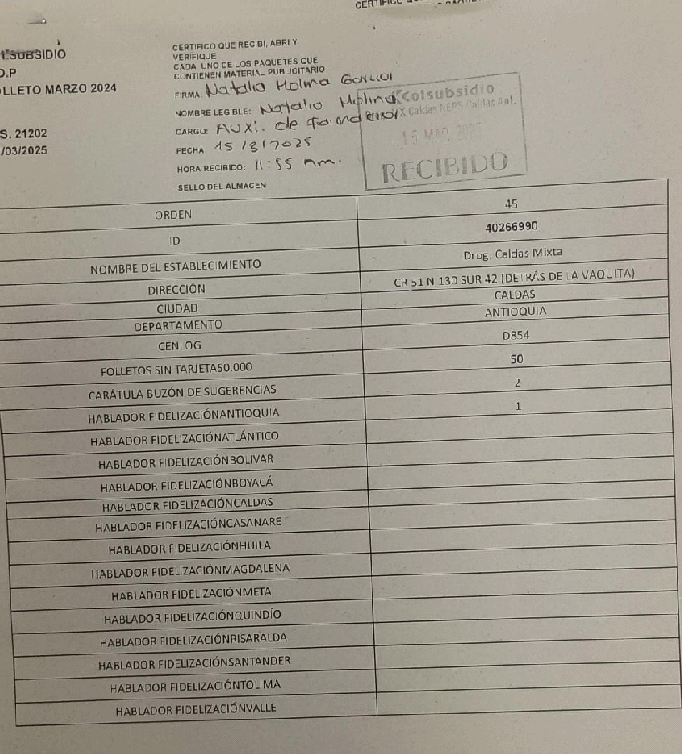 CERTIFICO QUE RECIBI, ABRI Y
VERIFIQUE
CADA UNO DE LOS PAQUETES QUE
CONTIENEN MATERIAL PUBLICITARIO
FIRMA: Natalia Molina Garcia
NOMBRE LEGIBLE: Natalia Molina
CARGO: Auxi. de
FECHA 15/3/2025
HORA RECIBIDO: 11:55 Am.
SELLO DEL ALMACEN
SUBSIDIO
O.P
LLETO MARZO 2024
S. 21202
/03/2025
Colsubsidio
15 MAR.
RECIBIDO
ORDEN 45
ID 40266990
NOMBRE DEL ESTABLECIMIENTO Drog. Caldas Mixta
DIRECCIÓN CR 51 N 130 SUR 42 (DETRÁS DE LA VAQUITA)
CIUDAD CALDAS
DEPARTAMENTO ANTIOQUIA
CEN. OG D354
FOLLETOS SIN TARJETA50.000 50
CARÁTULA BUZÓN DE SUGERENCIAS 2
HABLADOR FIDELIZACIÓNANTIOQUIA 1
HABLADOR FIDELIZACIÓNATLÁNTICO
HABLADOR FIDELIZACIÓNBOLIVAR
HABLADOR FIDELIZACIÓNBOYACÁ
HABLADOR FIDELIZACIÓNCALDAS
HABLADOR FIDELIZACIÓNCASANARE
HABLADOR FIDELIZACIÓNHUILA
HABLADOR FIDELIZACIÓNMAGDALENA
HABLADOR FIDELIZACIÓNMETA
HABLADOR FIDELIZACIÓNQUINDÍO
HABLADOR FIDELIZACIÓNRISARALDA
HABLADOR FIDELIZACIÓNSANTANDER
HABLADOR FIDELIZACIÓNTOLIMA
HABLADOR FIDELIZACIÓNVALLE